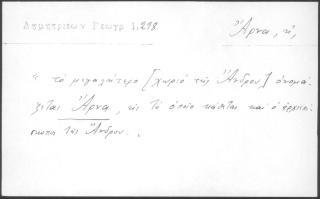 Δημητριεων Γεωγρ 1,298.
Ἄρνα, ἡ,
"τὸ μεγαλύτερο [χωριὸ τῆς Ἄνδρου] ὀνομά-
ζεται Ἄρνα, εἰς τὸ ὁποῖο κάθεται καὶ ὁ ἀρχιεπί-
σκοπος τῆς Ἄνδρου.